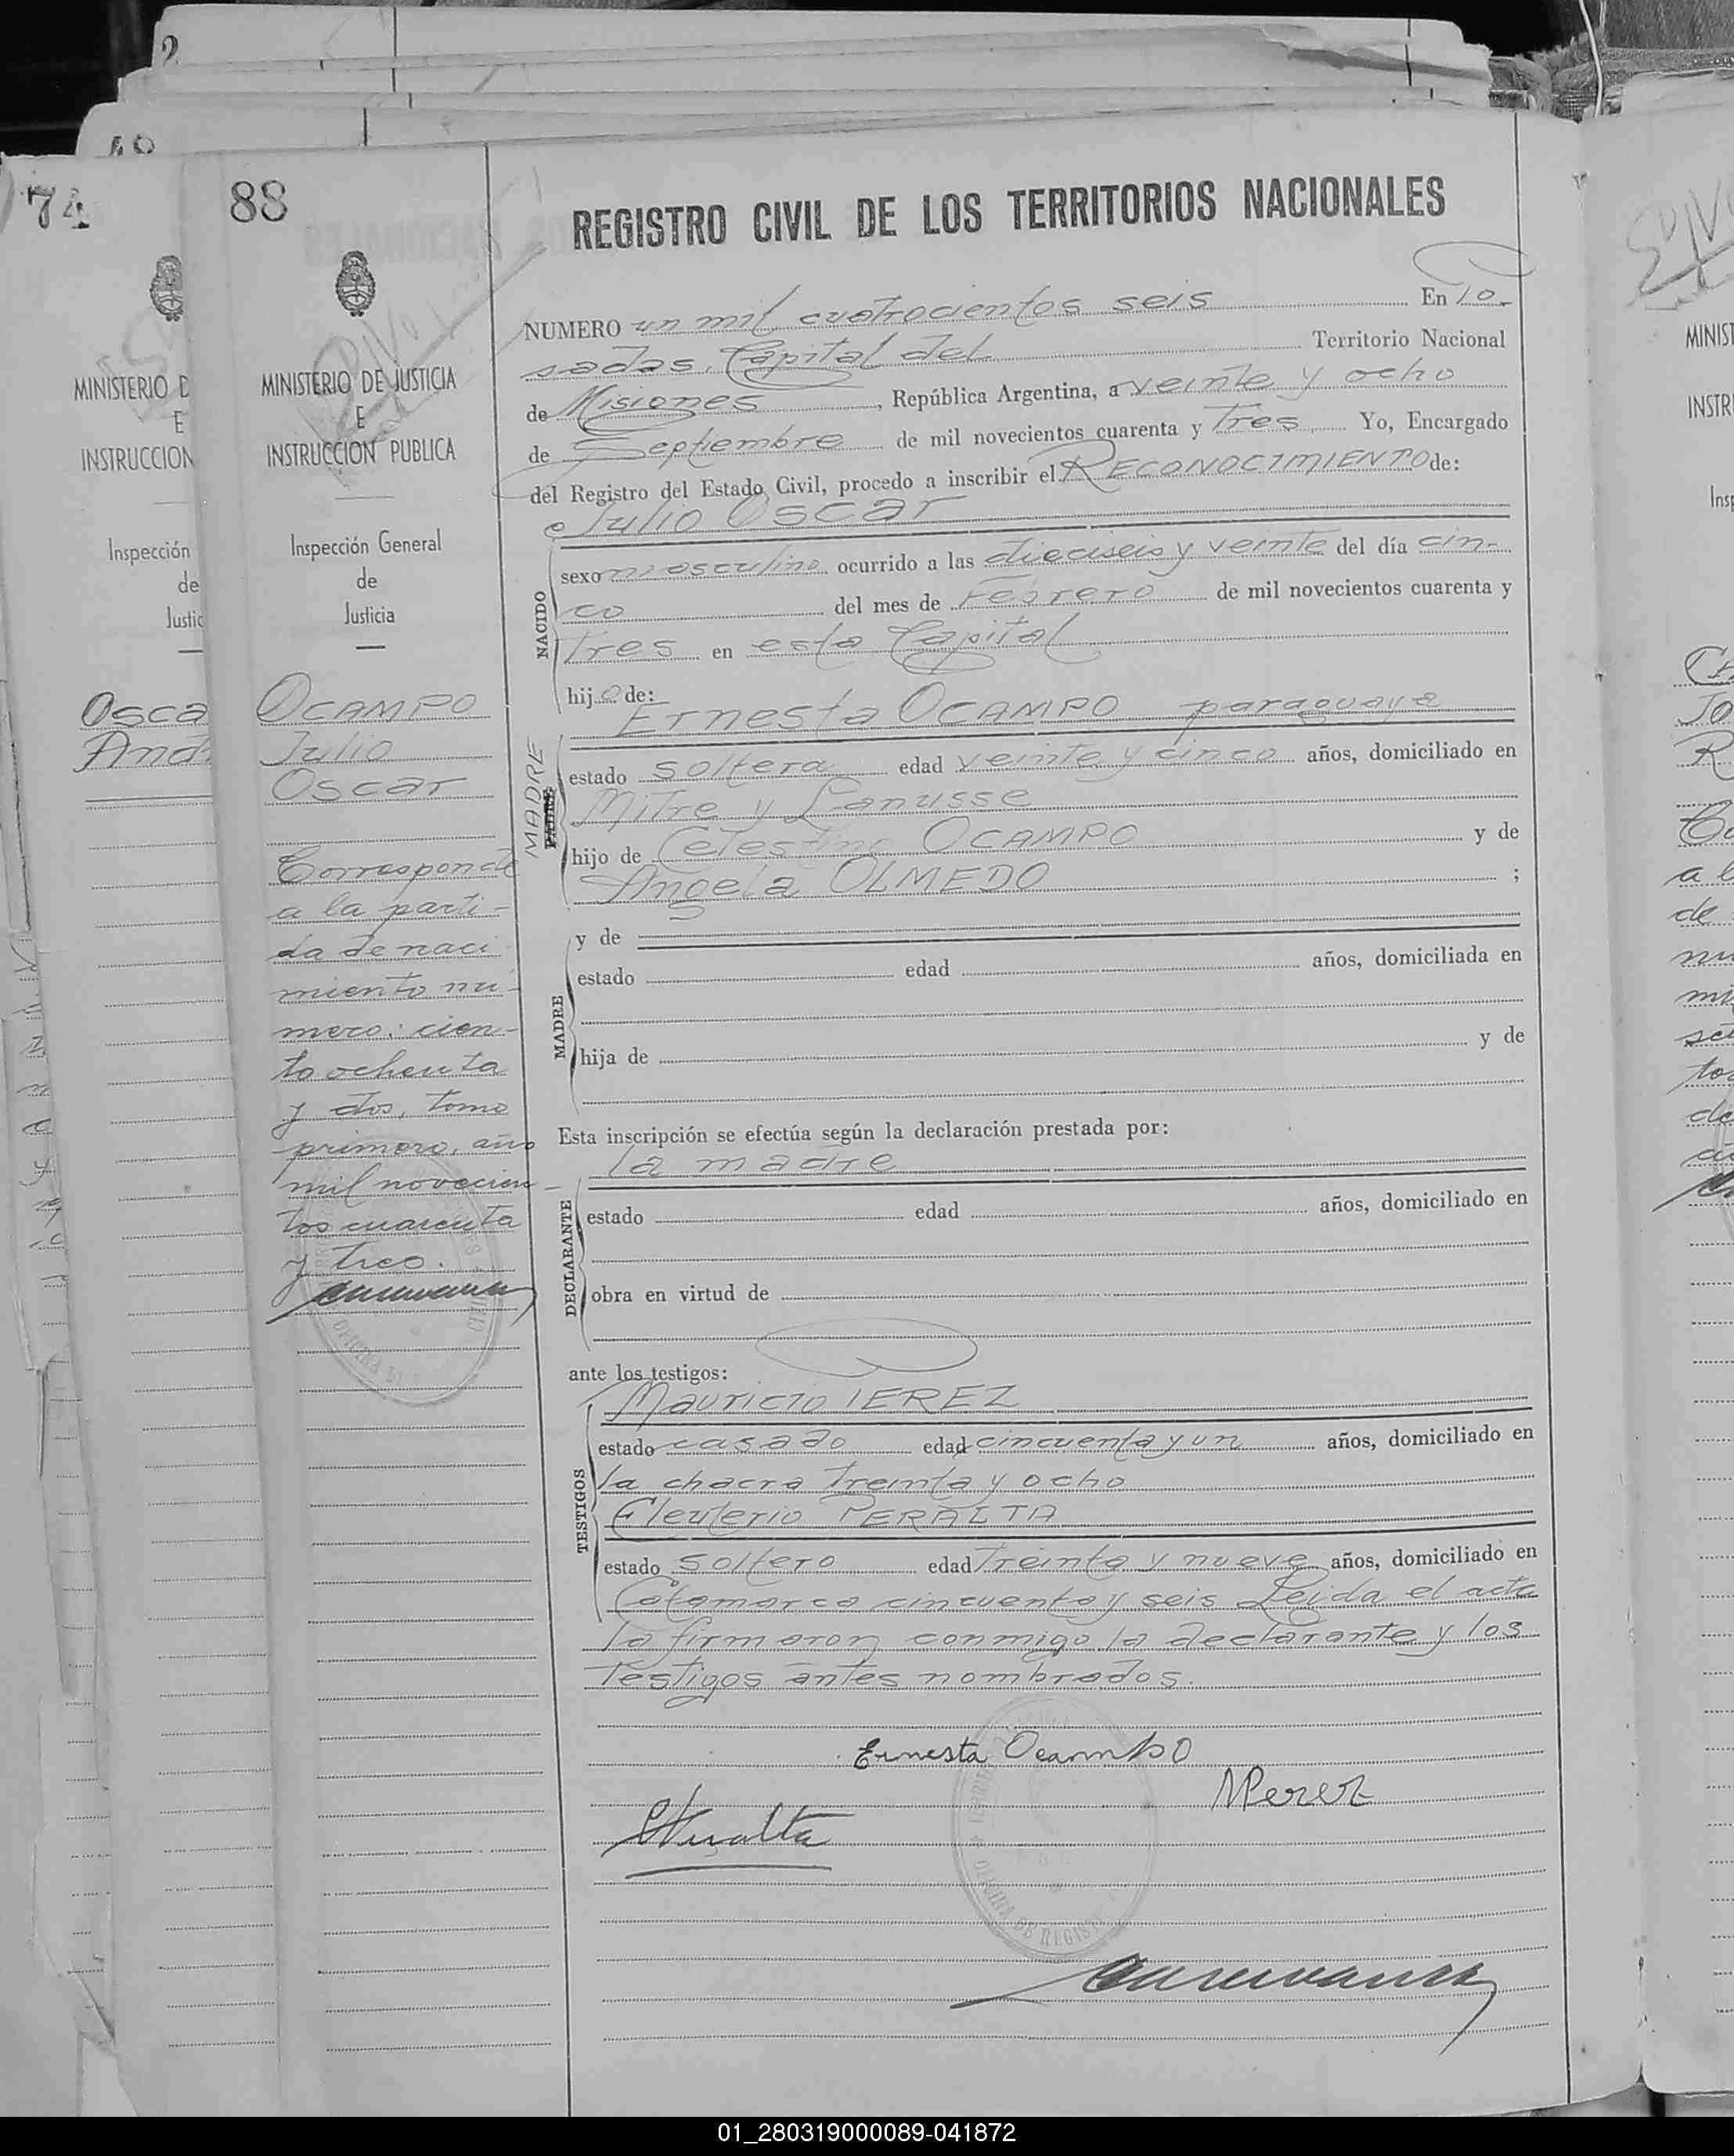 2
48
74
88
MINISTERIO D
E
INSTRUCCION
Inspección
de
Justic
Osca
And
MINISTERIO DE JUSTICIA
E
INSTRUCCION PUBLICA
Inspección General
de
Justicia
OCAMPO
Julio
Oscar
Corresponde
a la parti-
da de naci-
miento nu-
mero: cien-
to ochenta
y dos, tomo
primero, año
mil novecien-
tos cuarenta
y tres.
REGISTRO CIVIL DE LOS TERRITORIOS NACIONALES
NUMERO un mil cuatrocientos seis En Po-
sadas, Capital del Territorio Nacional
de Misiones, República Argentina, a veinte y ocho
de Septiembre de mil novecientos cuarenta y Tres Yo, Encargado
del Registro del Estado Civil, procedo a inscribir el RECONOCIMIENTO de:
Julio Oscar
NACIDO
sexo masculino ocurrido a las dieciseis y veinte del día cin-
co del mes de Febrero de mil novecientos cuarenta y
Tres en esta Capital
hijo de:
Ernesta OCAMPO paraguaya
MADRE
PADRE
estado soltera edad veinte y cinco años, domiciliado en
Mitre y Lanusse
hijo de Celestino OCAMPO y de
Angela OLMEDO ;
y de
MADRE
estado edad años, domiciliada en
hija de y de
Esta inscripción se efectúa según la declaración prestada por:
la madre
DECLARANTE
estado edad años, domiciliado en
obra en virtud de
ante los testigos:
Mauricio IEREZ
TESTIGOS
estado casado edad cincuenta y un años, domiciliado en
la chacra treinta y ocho
Eleuterio PERALTA
estado soltero edad Treinta y nueve años, domiciliado en
Catamarca cincuenta y seis Leida el acta
la firmaron conmigo la declarante y los
Testigos antes nombrados.
Ernesta Ocampo
MPerez
EPeralta
OFICINA DE REGIS
MINIST
INSTR
Insp
01_280319000089-041872